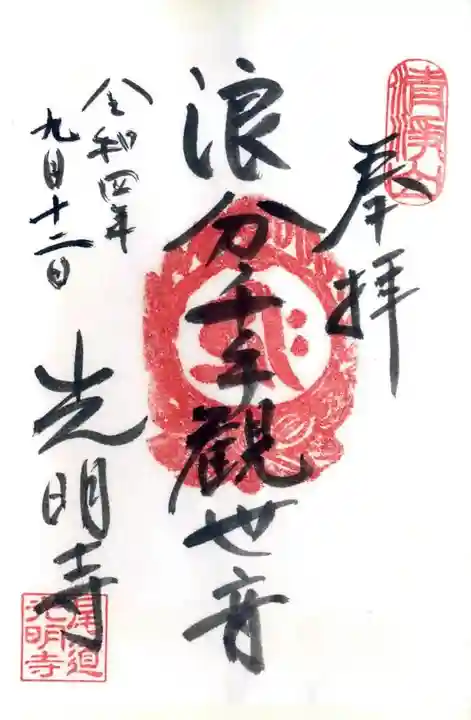 清浄山
奉拝
浪分千手觀世音
令和四年
九月十二日
光明寺
尾道
光明寺